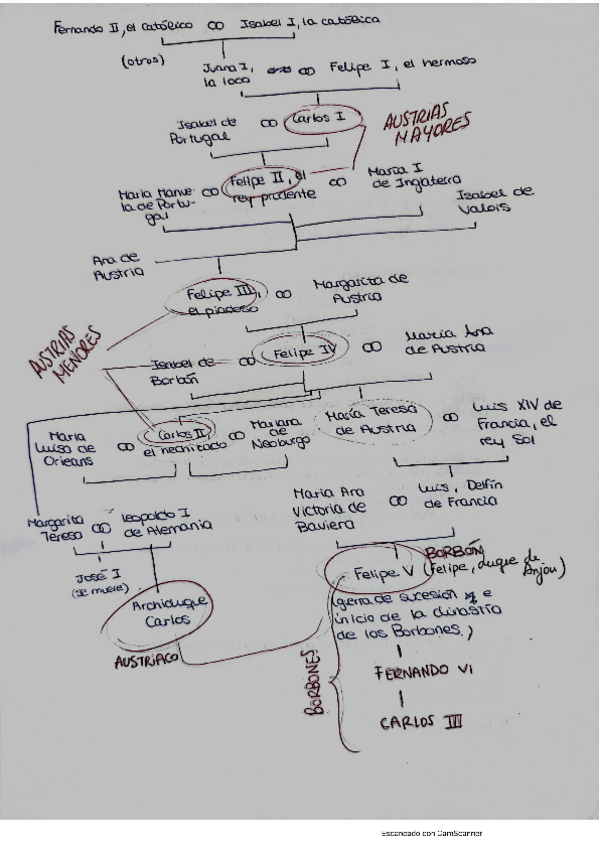 Fernando II, el católico ∞ Isabel I, la católica
(otros)
Juana I,
la loca
∞ Felipe I, el hermoso
Isabel de
Portugal
∞ Carlos I
AUSTRIAS
MAYORES
Maria Manue-
la de Portu-
gal
∞ Felipe II, el
rey prudente
∞ María I
de Inglaterra
Isabel de
Valois
Ana de
Austria
Felipe III,
el piadoso
∞ Margarita de
Austria
AUSTRIAS
MENORES
Isabel de
Borbón
∞ Felipe IV ∞ Maria Ana
de Austria
Maria
Luisa de
Orleans
∞ Carlos II,
el hechizado
∞ Mariana
de
Neoburgo
María Teresa
de Austria
∞ Luis XIV de
Francia, el
rey Sol
Margarita
Teresa
∞ Leopoldo I
de Alemania
Maria Ana
Victoria de
Baviera
∞ Luis, Delfín
de Francia
José I
(se muere)
Archiduque
Carlos
AUSTRIACO
BORBÓN
Felipe V (Felipe, duque de
Anjou)
(gerra de sucesión e
inicio de la dinastía
de los Borbones)
BORBONES
FERNANDO VI
CARLOS III
Escaneado con CamScanner